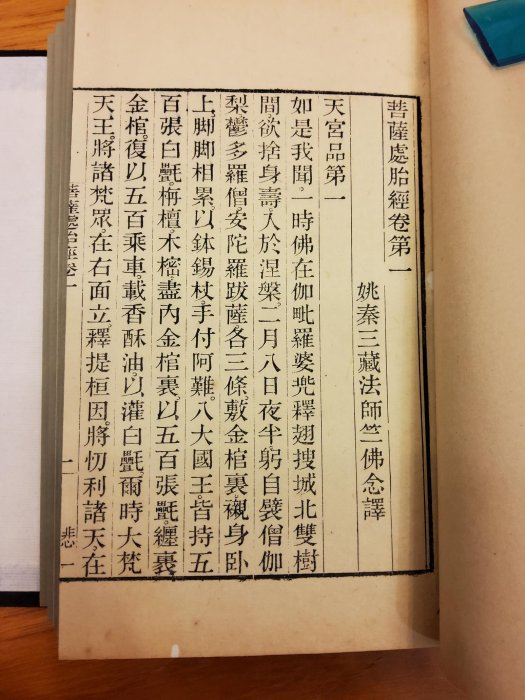 菩薩處胎經卷第一
姚秦三藏法師竺佛念譯
天宮品第一
如是我聞。一時佛在伽毗羅婆兜釋翅搜城北雙樹
間。欲捨身壽。入於涅槃。二月八日夜半。躬自襞僧伽
梨鬱多羅僧。安陀羅跋薩各三條。敷金棺裏。襯身臥
上。脚脚相累。以鉢錫杖。手付阿難。八大國王。皆持五
百張白㲲。栴檀木樒。盡內金棺裏。以五百張㲲。纏裹
金棺。復以五百乘車。載香酥油。以灌白㲲。爾時大梵
天王。將諸梵眾。在右面立。釋提桓因。將忉利諸天。在
菩薩處胎經卷一
一
悲一